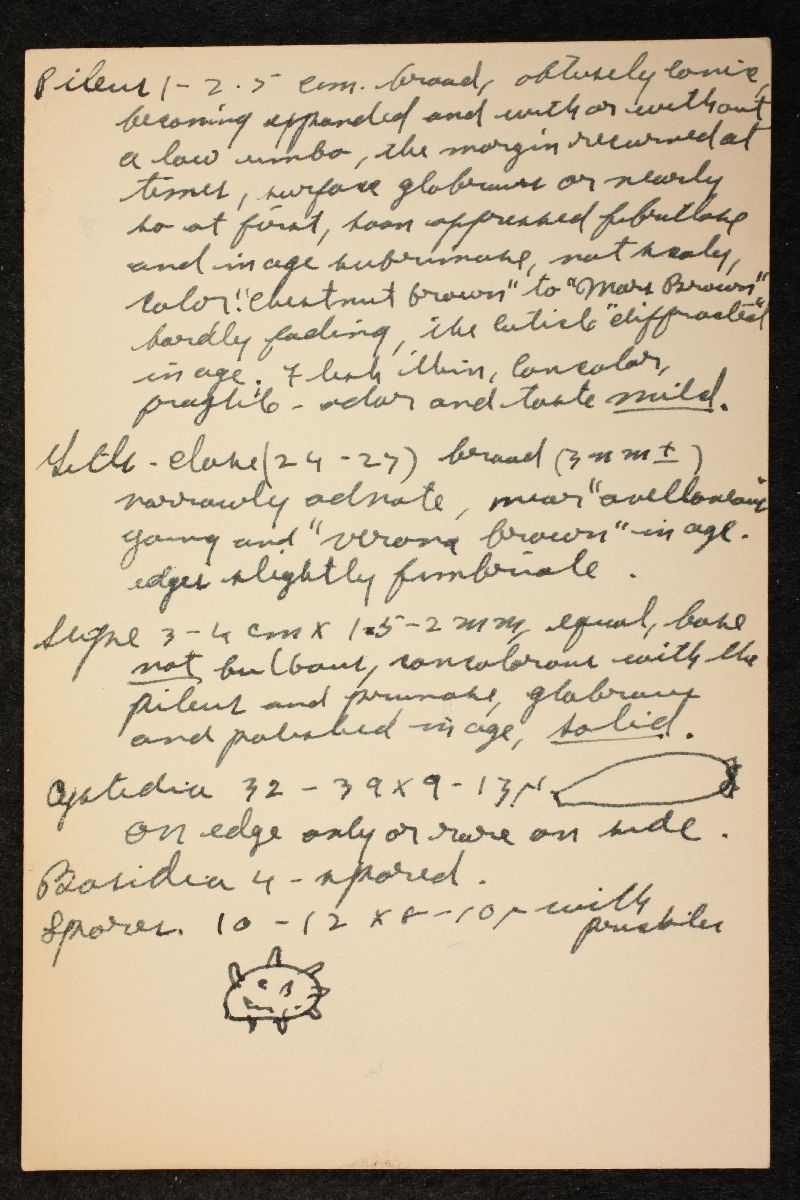 Pileus 1-2.5 cm. broad, obtusely conic,
becoming expanded and with or without
a low umbo, the margin recurved at
times, surface glabrous or nearly
so at first, soon appressed fibrillose
and in age subrimose, not scaly,
color: "chestnut brown" to "Mars Brown"
hardly fading, the cuticle "diffracted"
in age. Flesh thin, concolor,
fragile - odor and taste mild.
Gills - close (24-27) broad (3 mm ±)
narrowly adnate, near "avellaneous"
young and "verona brown" in age.
edges slightly fimbriate.
Stipe 3-4 cm x 1.5-2 mm, equal, base
not bulbous, concolorous with the
pileus and pruinose, glabrous
and polished in age, solid.
Cystidia 32-39 x 9-13 µ.
on edge only or rare on side.
Basidia 4-spored.
Spores. 10-12 x 8-10 µ with